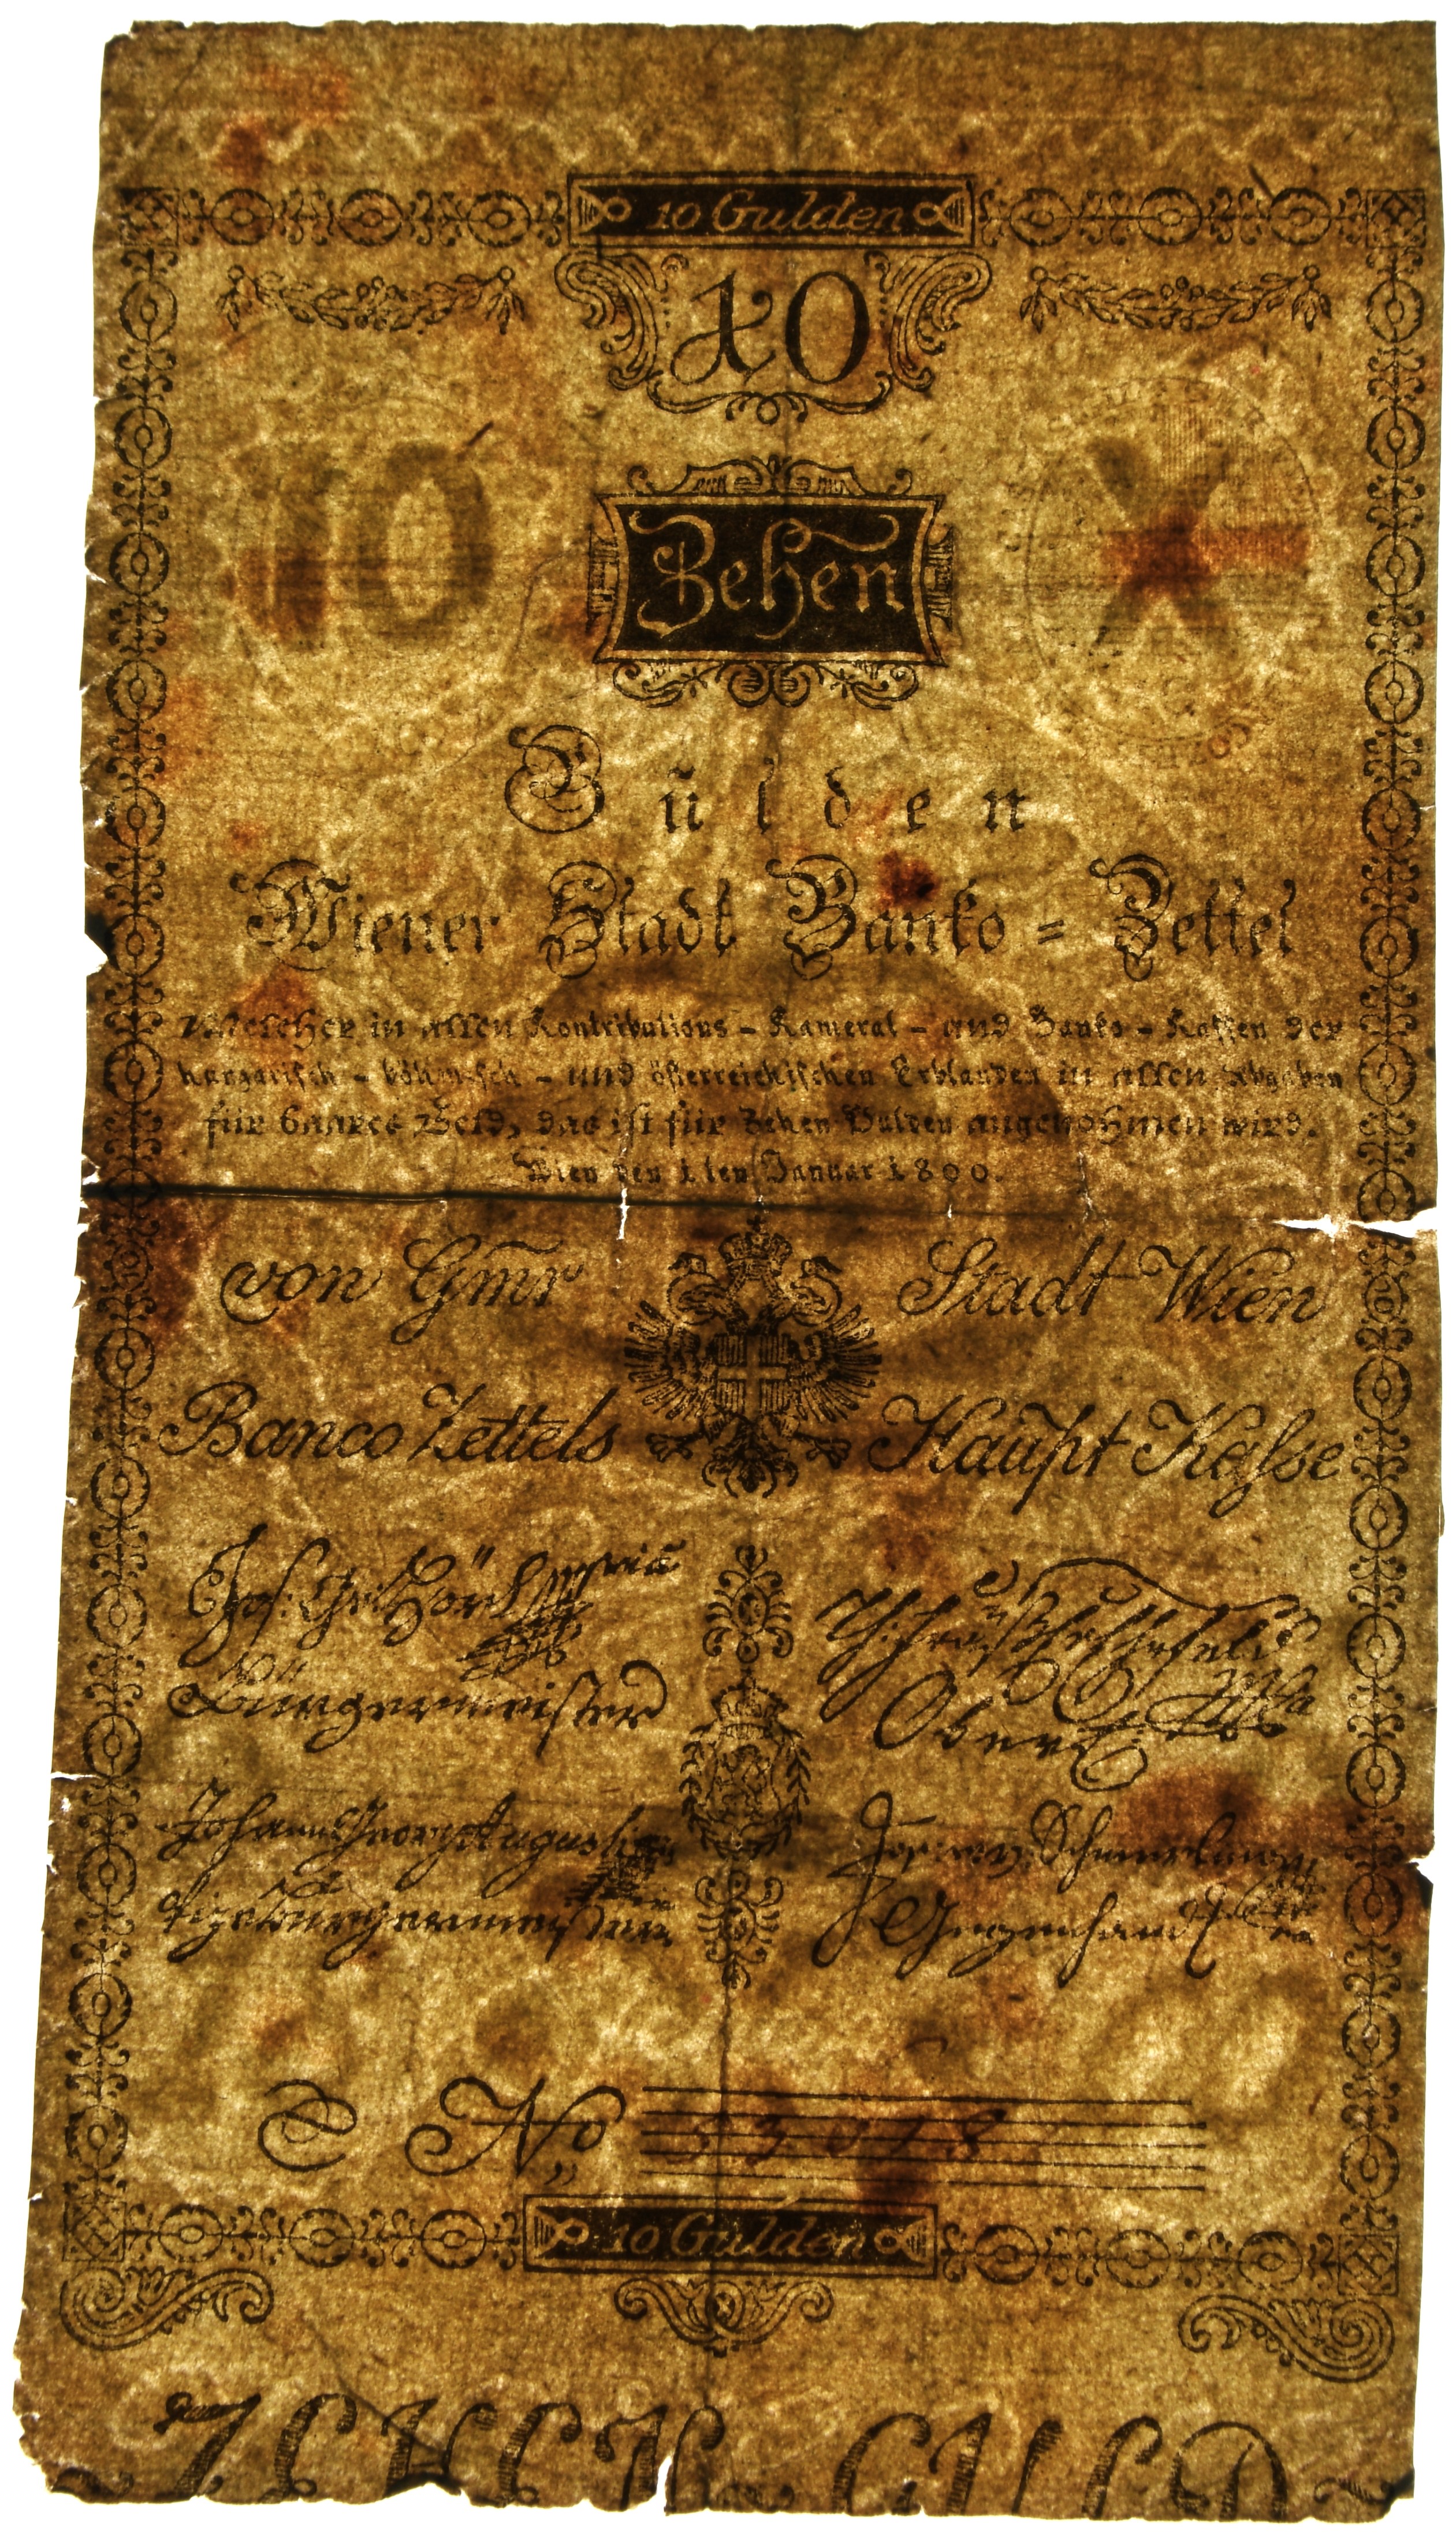 10 Gulden
10
10 X
Zehen
Gulden
Wiener Stadt Banko = Zettel
Welcher in allen Kontributions - Kameral - und Banko - Kassen der
hungarisch - böhmisch - und österreichischen Erblanden in allen Abgaben
für baares Geld, das ist für Zehen Gulden angenohmen wird.
Wien den 1ten Januar 1800.
von Gmr Stadt Wien
Banco Zettels Haupt Kasse
Bürgermeister
Johann Georg Augusti
Vizebürgermeister
C No 53018
10 Gulden
ZEHEN GULD